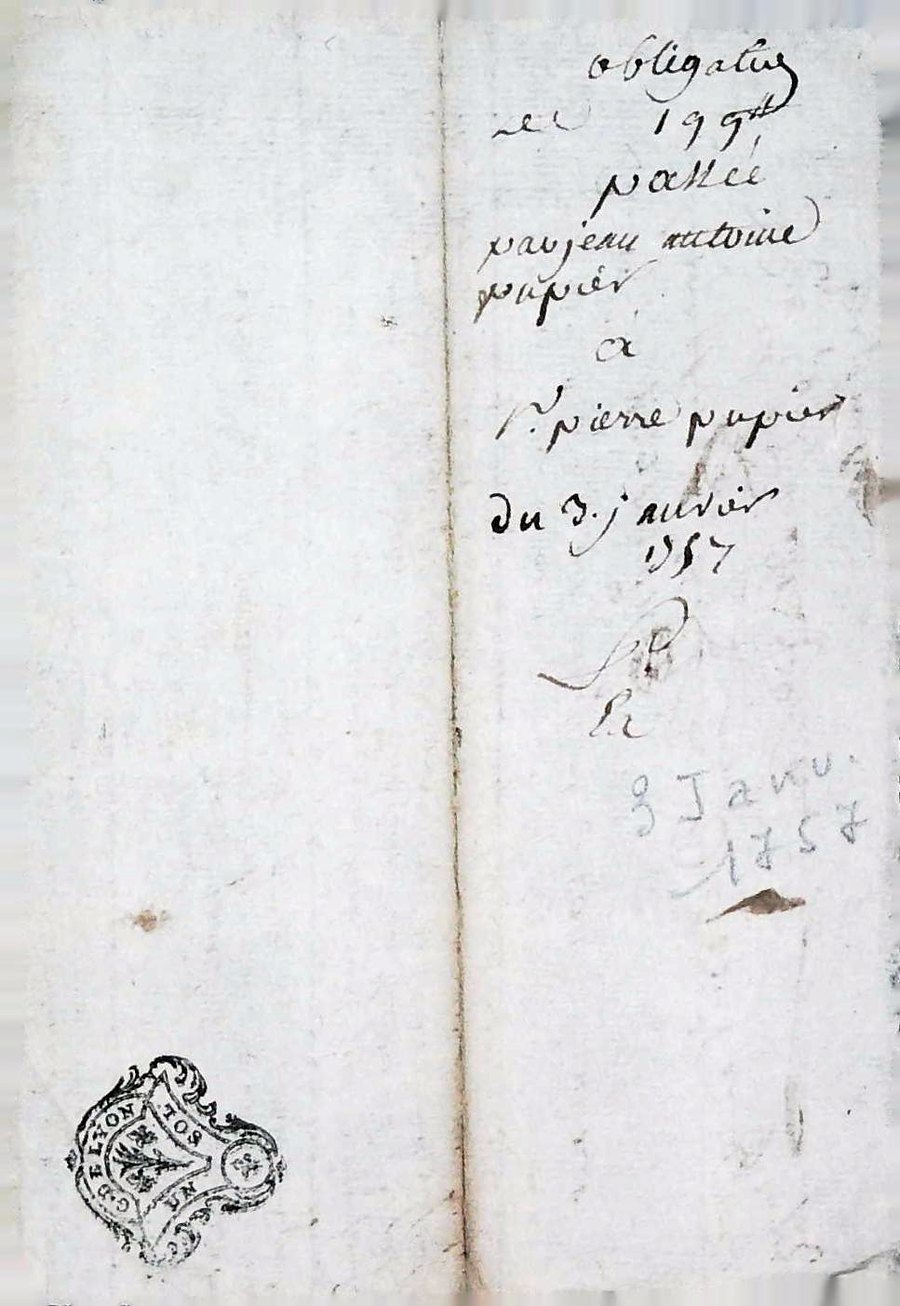 obligation
de 199ₜₜ
passée
par jean antoine
pupier
à
Sr. pierre pupier
du 3. janvier
1757
3 Janv.
1757
G. DE LYON
TOS
UN